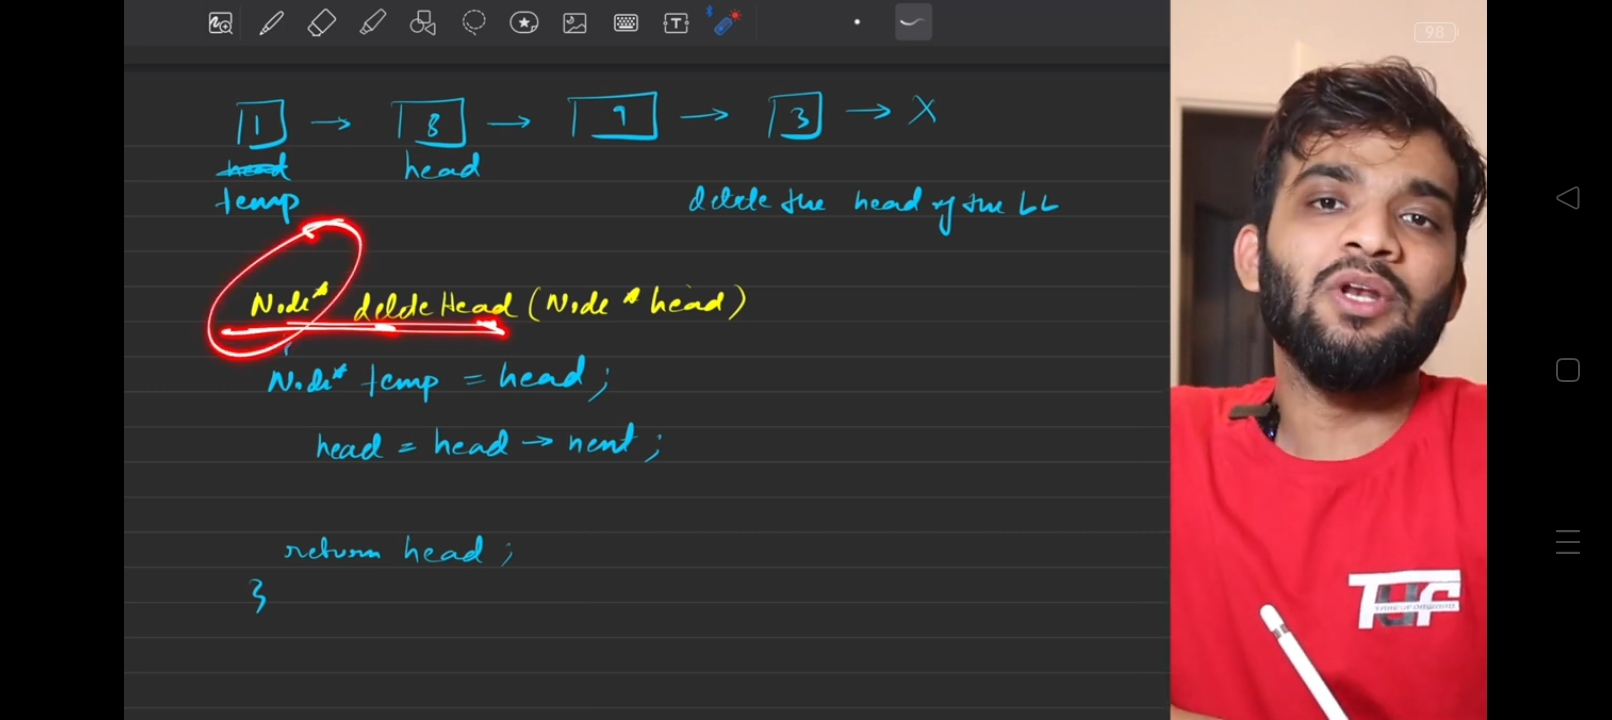 98
1 → 8 → 9 → 3 → X
head head
temp delete the head of the LL
Node* deleteHead (Node * head)
{
Node* temp = head;
head = head → next;
return head;
}
TUF